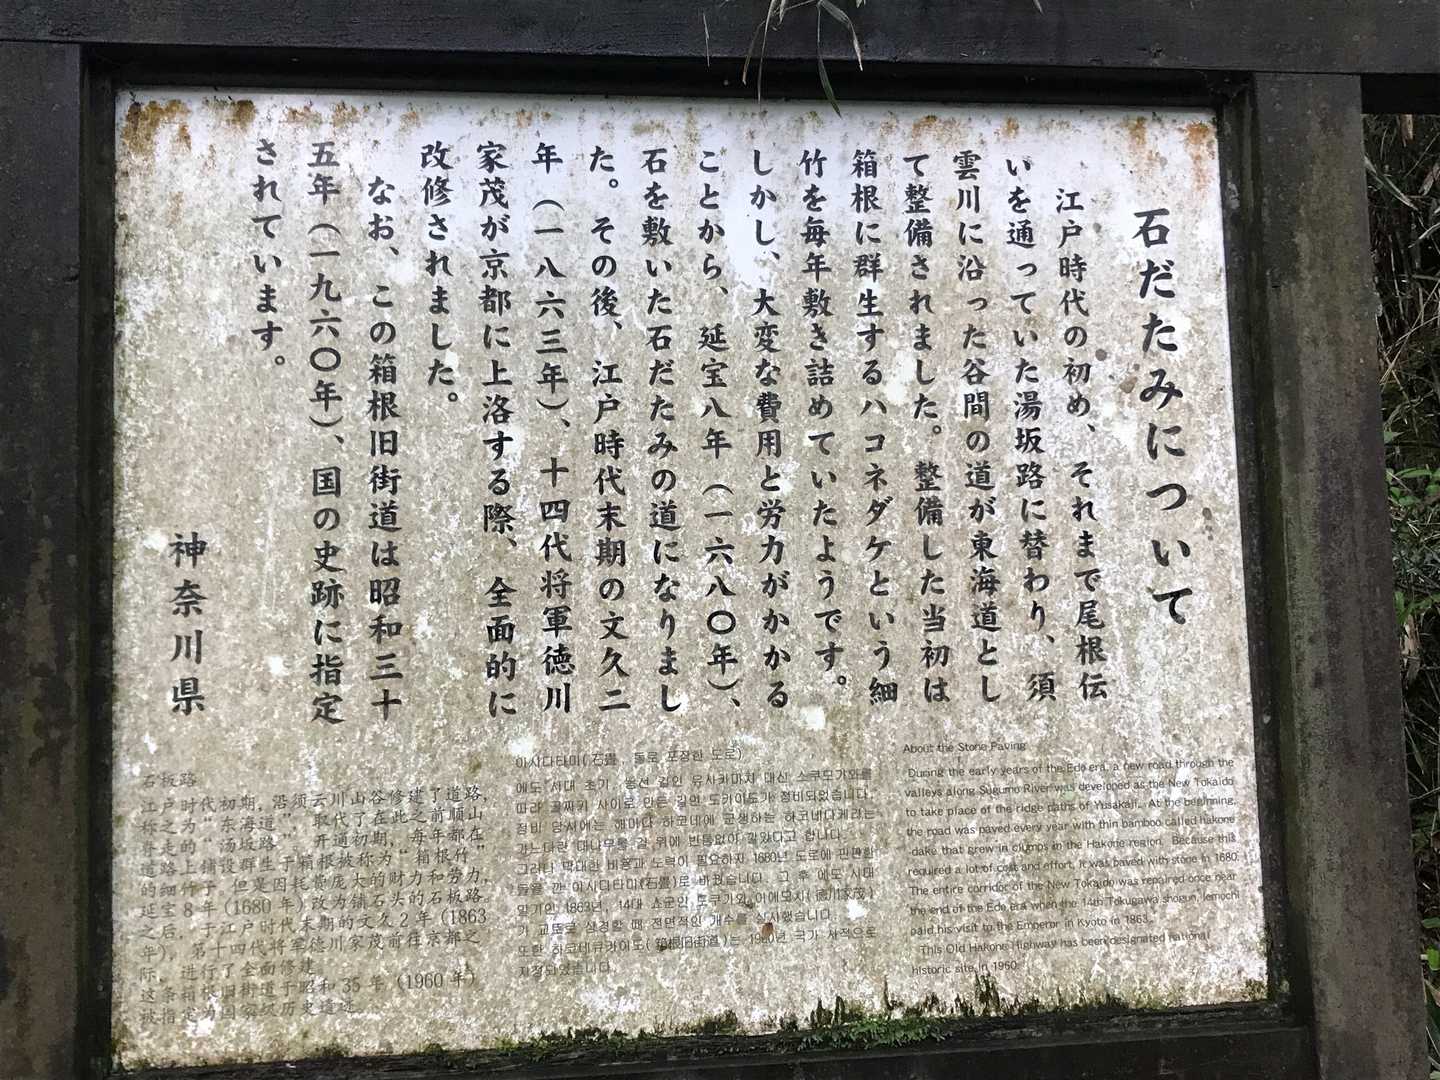 石だたみについて
江戸時代の初め、それまで尾根伝
いを通っていた湯坂路に替わり、須
雲川に沿った谷間の道が東海道とし
て整備されました。整備した当初は
箱根に群生するハコネダケという細
竹を毎年敷き詰めていたようです。
しかし、大変な費用と労力がかかる
ことから、延宝八年（一六八〇年）、
石を敷いた石だたみの道になりまし
た。その後、江戸時代末期の文久二
年（一八六三年）、十四代将軍徳川
家茂が京都に上洛する際、全面的に
改修されました。
なお、この箱根旧街道は昭和三十
五年（一九六〇年）、国の史跡に指定
されています。
神奈川県
石板路
江户时代初期，沿须云川山谷修建了道路，
称之为“东海道”，取代了在此之前顺山
脊走的“汤坂路”。开通初期，每年都在
道路上铺设群生于箱根被称为“箱根竹”
的细竹子，但是因耗费庞大的财力和劳力，
延宝8年(1680年)改为铺石头的石板路。
之后，于江户时代末期的文久2年(1863
年)，第十四代将军德川家茂前往京都之
际，进行了全面修建。
这条箱根旧街道于昭和35年(1960年)
被指定为国家级历史遗迹。
이시다타미(石畳, 돌로 포장한 도로)
에도 시대 초기, 능선 길인 유사카미치 대신 스쿠모가와를
따라 골짜기 사이로 만든 길인 도카이도가 정비되었습니다.
정비 당시에는 해마다 하코네에 군생하는 하코네다케라는
가느다란 대나무를 길 위에 빈틈없이 깔았다고 합니다.
그러나 막대한 비용과 노력이 필요하자 1680년 도로에 판판한
돌을 깐 이시다타미(石畳)로 바꿨습니다. 그 후 에도 시대
말기인 1863년, 14대 쇼군인 도쿠가와 이에모치(徳川家茂)
가 교토로 상경할 때 전면적인 개수를 실시했습니다.
또한 하코네큐카이도(箱根旧街道)는 1960년 국가 사적으로
지정되었습니다.
About the Stone Paving
During the early years of the Edo era, a new road through the
valleys along Sugumo River was developed as the New Tokaido
to take place of the ridge paths of Yusakaji. At the beginning,
the road was paved every year with thin bamboo called hakone
-dake that grew in clumps in the Hakone region. Because this
required a lot of cost and effort, it was paved with stone in 1680.
The entire corridor of the New Tokaido was repaired once near
the end of the Edo era when the 14th Tokugawa shogun, Iemochi
paid his visit to the Emperor in Kyoto in 1863.
This Old Hakone Highway has been designated national
historic site in 1960.